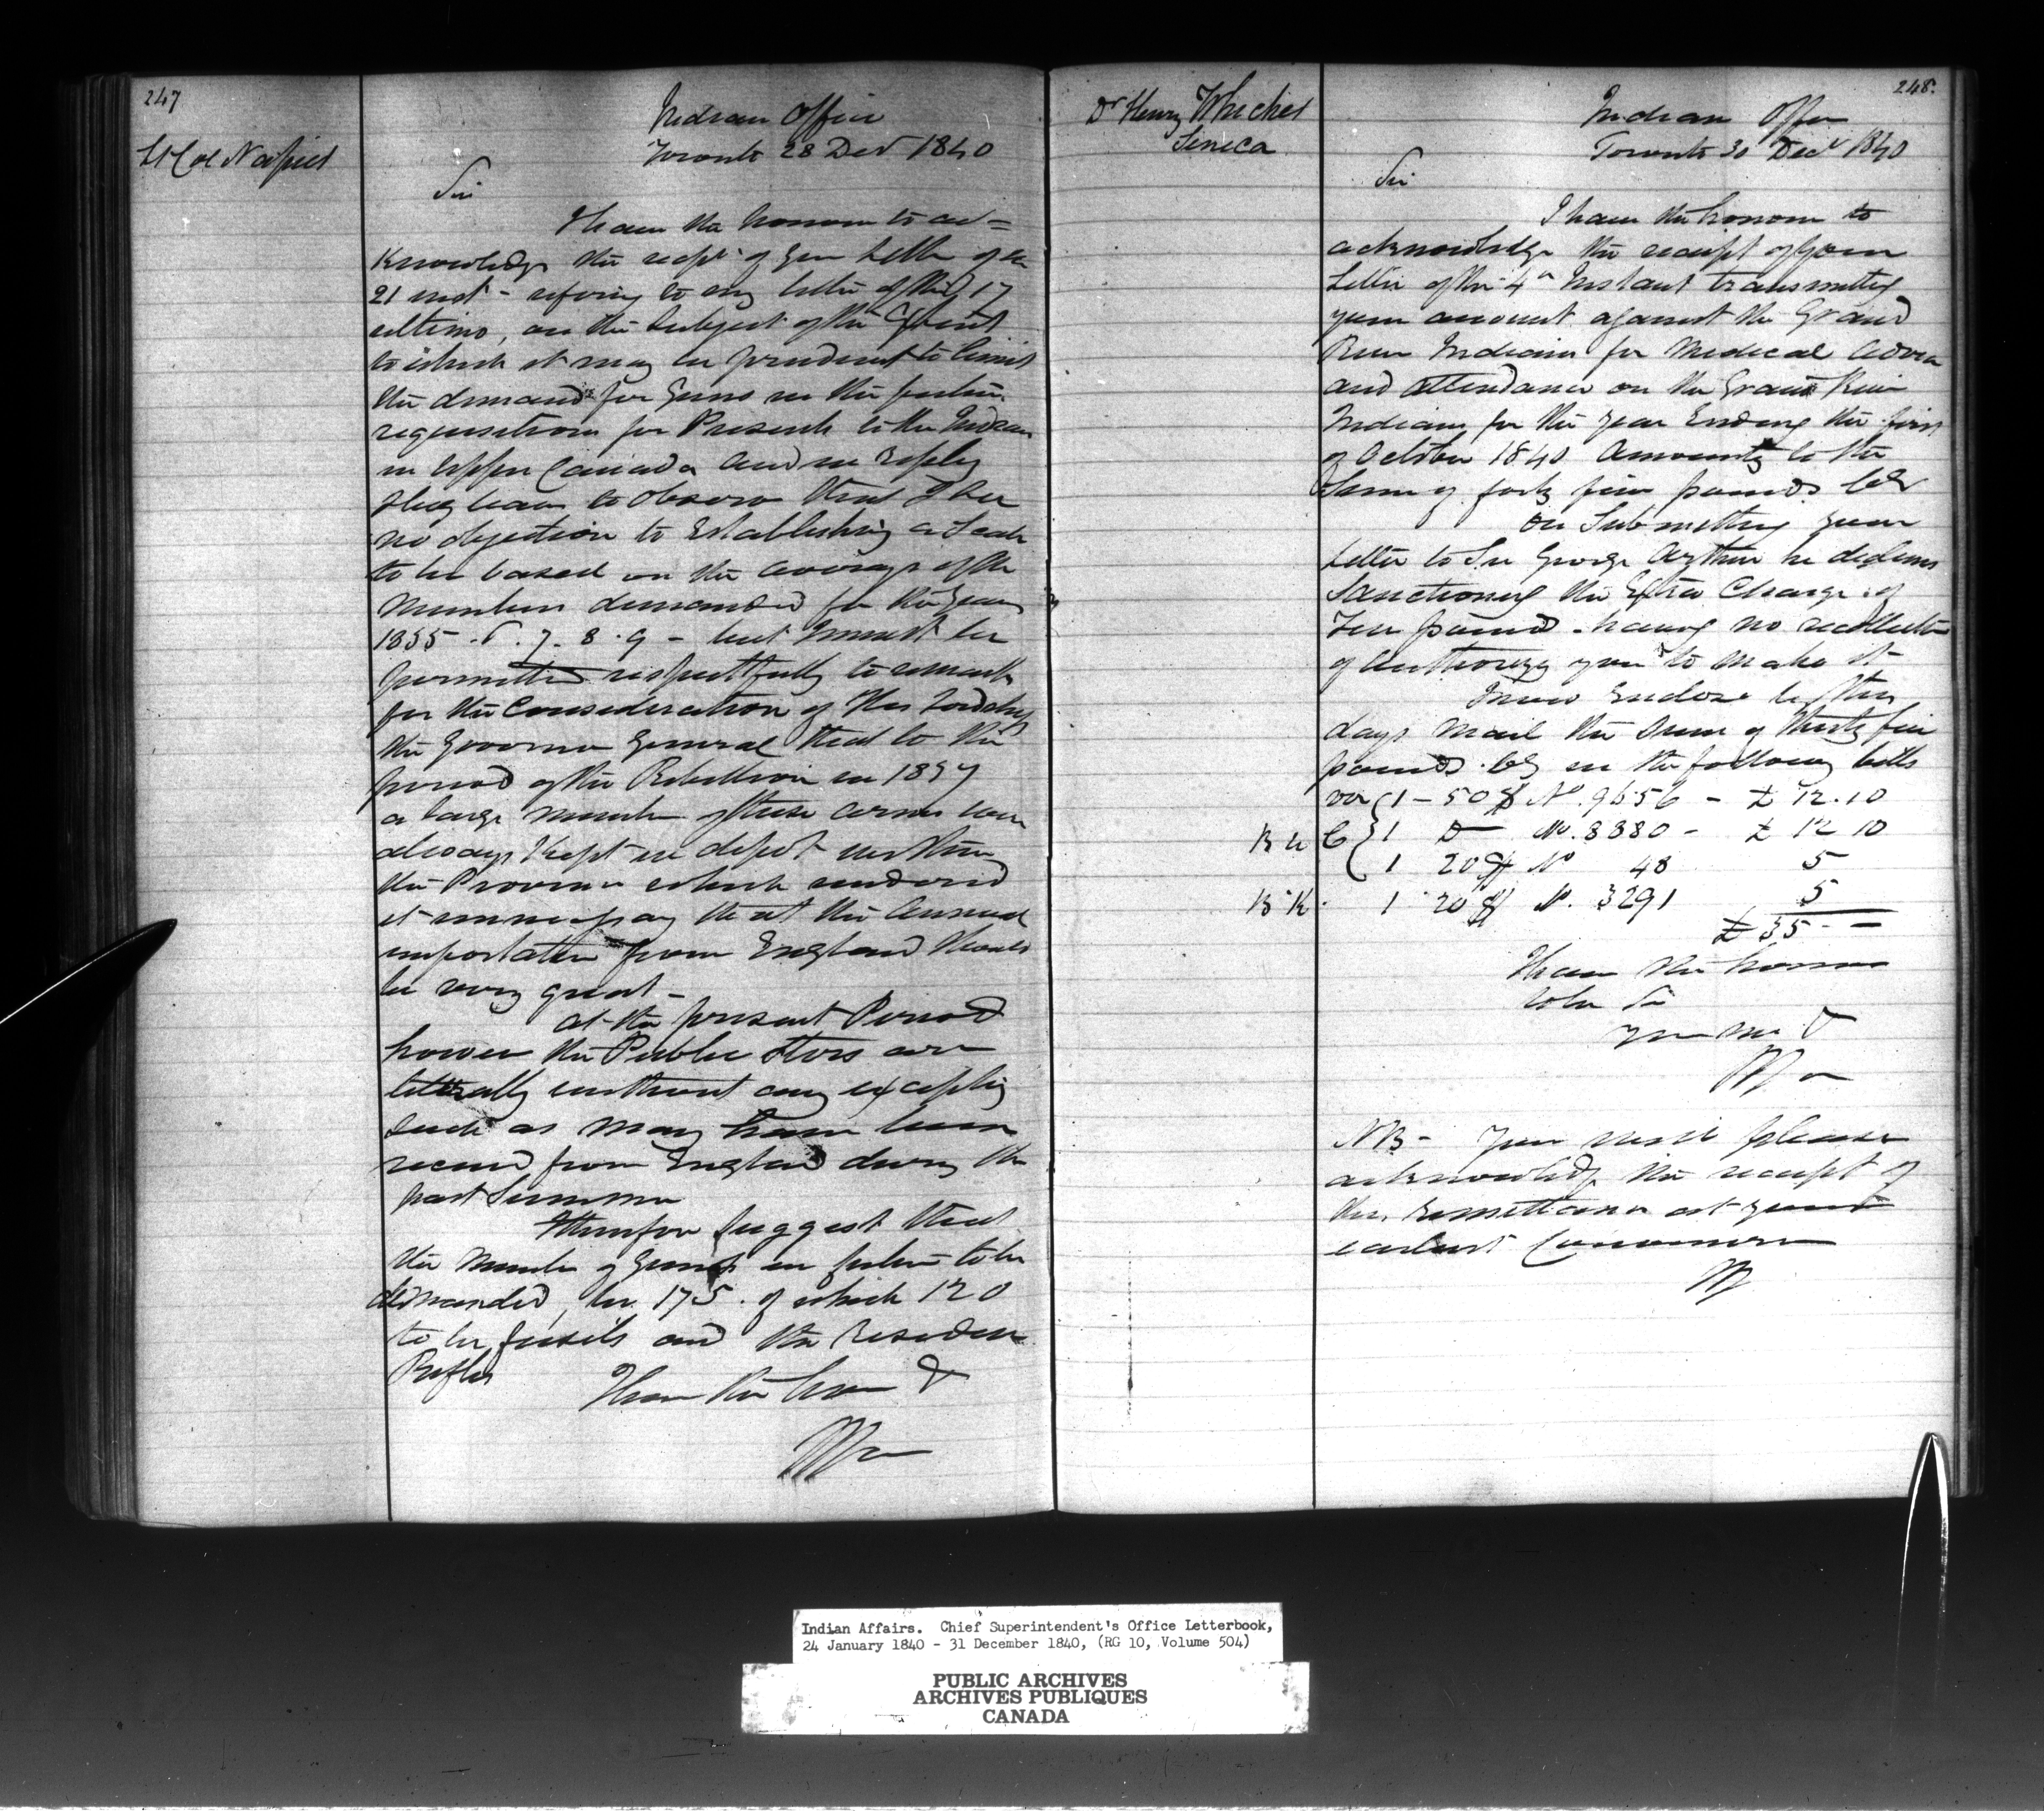 247
Lt Col Napier
Indian Office
Toronto 28 Decr 1840
Sir
I have the honour to ac=
knowledge the recpt of your Letter of the
21 inst - refering to my letter of the 17
ultimo, on the Subject of the Extent
to which it may be prudent to limit
the demands for Guns in the future
requisitions for Presents to the Indians
in Upper Canada and in Reply
I beg leave to observe that I see
no objection to Establishing a Scale
to be based on the average of the
Numbers demanded for the years
1835 . 6 . 7 . 8 . 9 - but I must be
permitted respectfully to remark
for the Consideration of His Lordship
the Governor General that to the
period of the Rebellion in 1837
a large number of these arms were
always kept in depot within
the Province which rendered
it unnecessary that the annual
importation from England should
be very great -
at the present Period
however the Public Stores are
litterally without any excepting
such as may have been
received from England during the
past Summer
I therefore Suggest that
the number of Guns in future to be
demanded, be 175 . of which 120
to be fusils and the residue
Rifles
I have the honor &
248.
Dr Henry Whicher
Seneca
Indian Office
Toronto 30 Decr 1840
Sir
I have the honour to
acknowledge the receipt of your
Letter of the 4th Instant transmitting
your account against the Grand
River Indians for Medical advice
and attendance on the Grand River
Indians for the year Ending the first
of October 1840 Amounting to the
Sum of forty five pounds Cy
On Submitting your
Letter to Sir George Arthur he declines
Sanctioning the Extra Charge of
Ten pounds - having no recollection
of authorizing you to make it
I now Enclose by this
days mail the Sum of thirty five
pounds Cy in the following bills
viz 1 - 50$ No. 9656 - £ 12.10
B U C 1 Do No. 8880 - £ 12 10
1 20$ No 48 5
B K. 1 20$ No. 3291 5
£ 35 - -
I have the honor
to be Sir
your mo &
NB - You will please
acknowledge the receipt of
this remittance at your
earliest Convenience
Indian Affairs. Chief Superintendent's Office Letterbook,
24 January 1840 - 31 December 1840, (RG 10, Volume 504)
PUBLIC ARCHIVES
ARCHIVES PUBLIQUES
CANADA